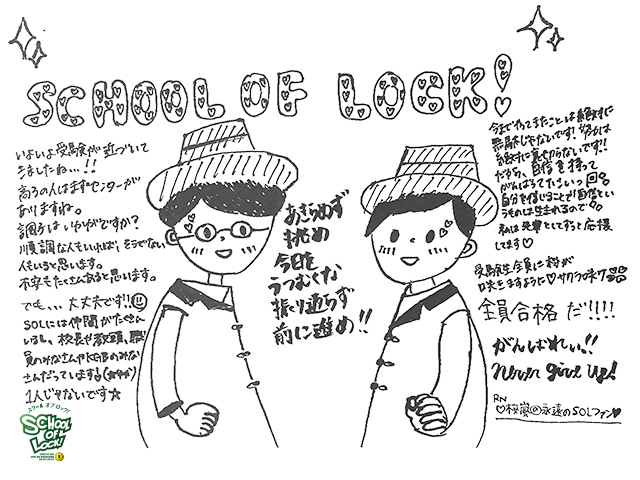 SCHOOL OF LOCK!
いよいよ受験が近づいて
きましたね...!!
高3の人はまずセンターが
ありますね。
調子はいかがですか?
順調な人もいれば、そうでない
人もいると思います。
不安もたくさんあると思います。
でも、、、大丈夫です!!
SOLには仲間がたくさん
いるし、校長や教頭、職
員のみなさんや
さんだっています!
1人じゃないです☆
あきらめず
挑め
今日を
うつむくな
振り返らず
前に進め!!
今までやってきたことは絶対に
無駄じゃないです!努力は
絶対に裏切らないです!!
だから、自信を持って
がんばってください。
自分を信じることで自信という
ものは生まれるので
私は先輩としてずっと応援
してます♡
受験生全員に桜が
咲きますように♡サクラサク
全員合格だ!!!!
がんばれぃ!!
Never give up!
RN
♡桜嵐@永遠のSOLファン♥
スクール オブ ロック!
SCHOOL
OF
LOCK!